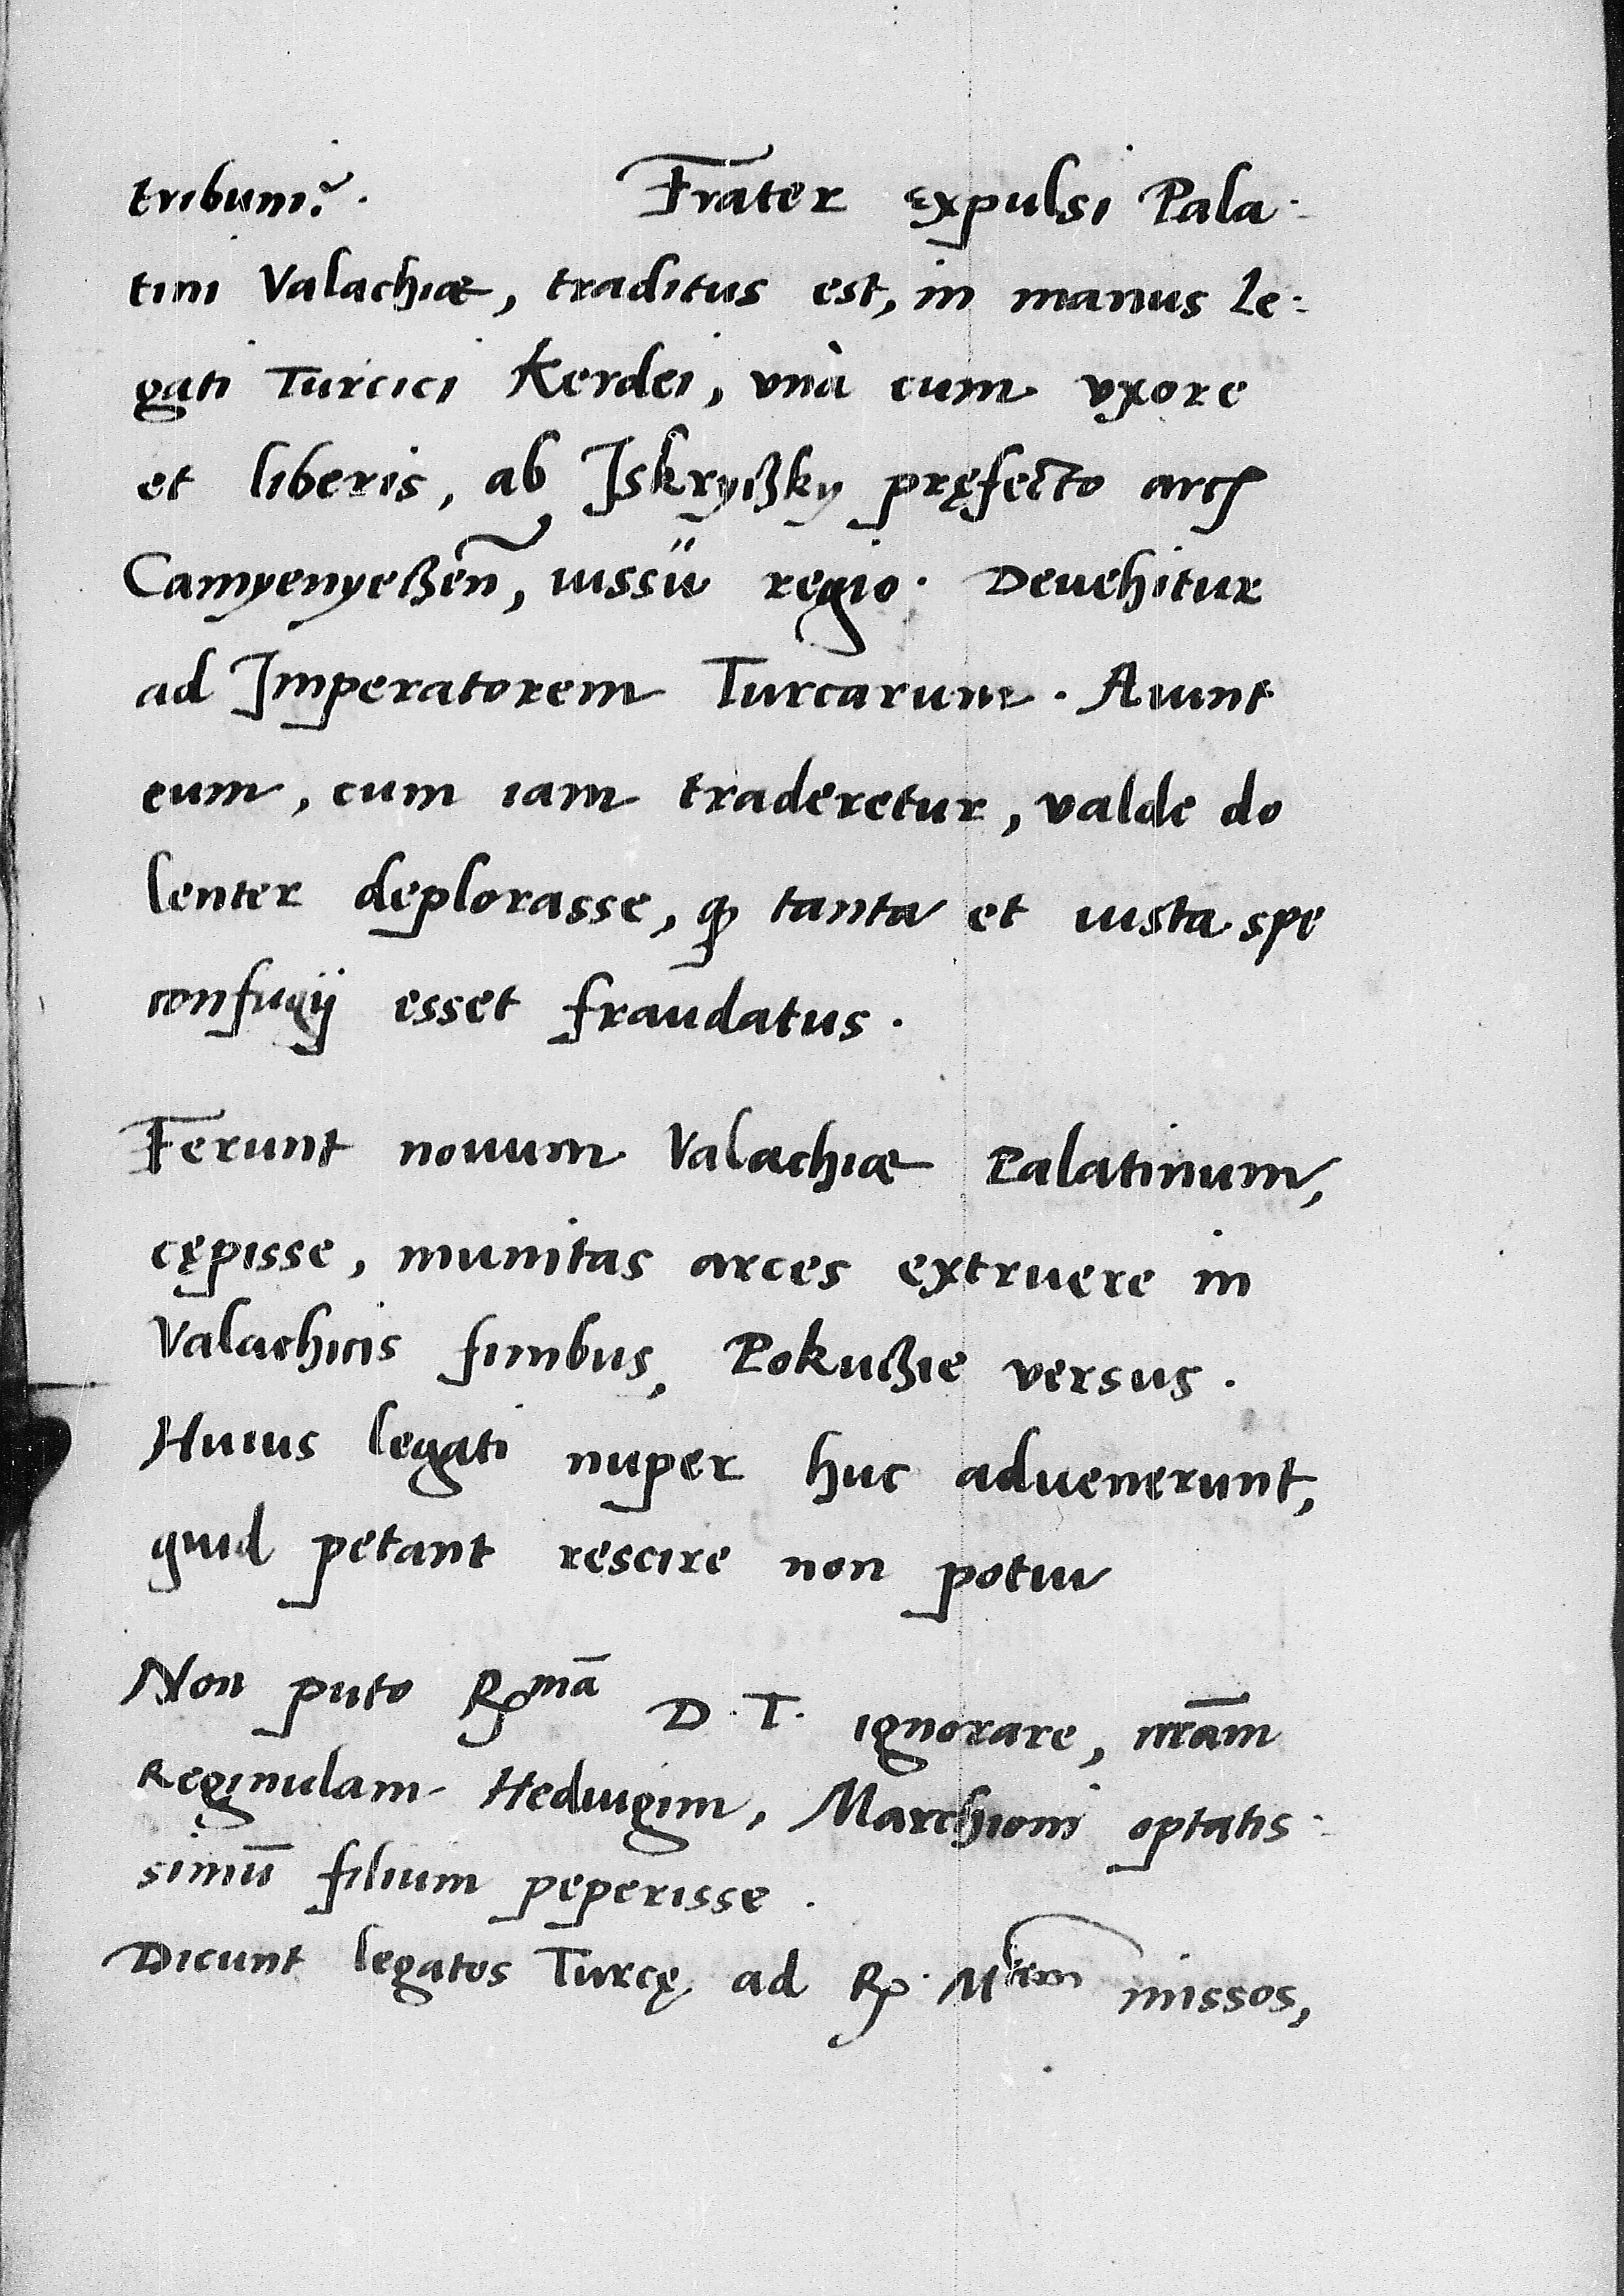 tribuni?. Frater expulsi Pala-
tini Valachiæ, traditus est, in manus le:
gati Turcici Kerdei, vnà cum vxore
et liberis, ab Iskryßky pręfecto arcꝭ
Camyenyeßeñ, iussu regio. Deuehitur
ad Imperatorem Turcarum. Aiunt
eum, cum iam traderetur, valde do
lenter deplorasse, ꝙ tanta et iusta spe
confugij esset fraudatus.
Ferunt nouum Valachiæ Palatinum,
cępisse, munitas arces extruere in
Valachicis finibus, Pokußie versus.
Huius legati nuper huc aduenerunt,
quid petant rescire non potui
Non puto R̨mā D. T. ignorare, nr̄am
Reginulam Heduigim, Marchioni optatis-
simū filium peperisse.
Dicunt legatos Turcę ad R. Mtem missos,